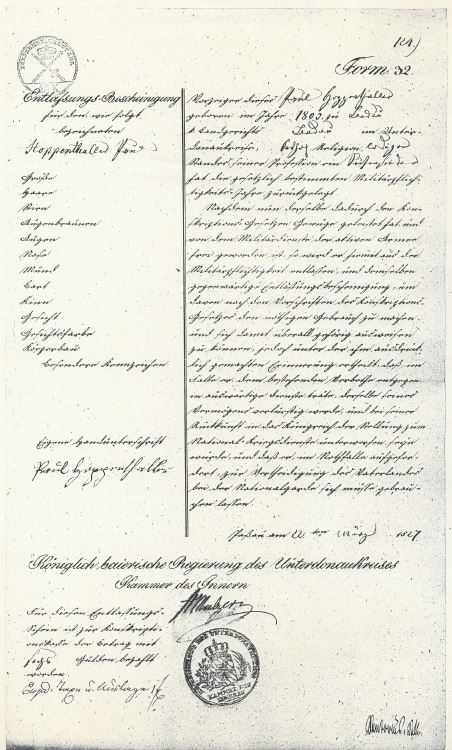 124)
Form 32
Entlassungs-Bescheinigung
für den wie folgt
bezeichneten
Hoppenthaller Paul
Größe
Haare
Stirn
Augenbraunen
Augen
Nase
Mund
Bart
Kinn
Gesicht
Gesichtsfarbe
Körperbau
besondere Kennzeichen
Eigene Handunterschrift
Paul Hoppenthaller
Vorzeiger dieses Paul Hoppenthaller
geboren im Jahre 1803 zu
k Landgerichts im Unter-
donaukreise, Religion, ledigen
Standes seiner Profession ein
hat die gesetzlich bestimmten Militärpflich-
tigkeits-Jahre zurückgelegt
Nachdem nun derselbe dadurch den Kon-
skriptions-Gesetzen Genüge geleistet hat, und
von dem Militärdienste der aktiven Armee
frei geworden ist, so wird er hiemit aus der
Militärpflichtigkeit entlassen, und demselben
gegenwärtige Entlassungsbescheinigung, um
davon nach den Vorschriften des Konskriptions-
Gesetzes den nöthigen Gebrauch zu machen,
und sich damit überall gehörig ausweisen
zu können, jedoch unter der ihm ausdrück-
lich gemachten Erinnerung ertheilt, daß im
Falle er dem bestehenden Verbothe entgegen
in auswärtige Dienste träte, derselbe seines
Vermögens verlustig werde, und bei seiner
Rückkunft in das Königreich der Stellung zum
National Kriegsdienste unterworfen seyn
würde, und daß er im Nothfalle aufgefor-
dert, zur Vertheidigung des Vaterlandes
bei der Nationalgarde sich müsse gebrau-
chen lassen.
Paßau am ten März 1827
Königlich baierische Regierung des Unterdonaukreises
Kammer des Innern
Für diesen Entlassungs-
Schein ist zur Konskripti-
onskasse der Betrag mit
sechs Gulden bezahlt
worden.